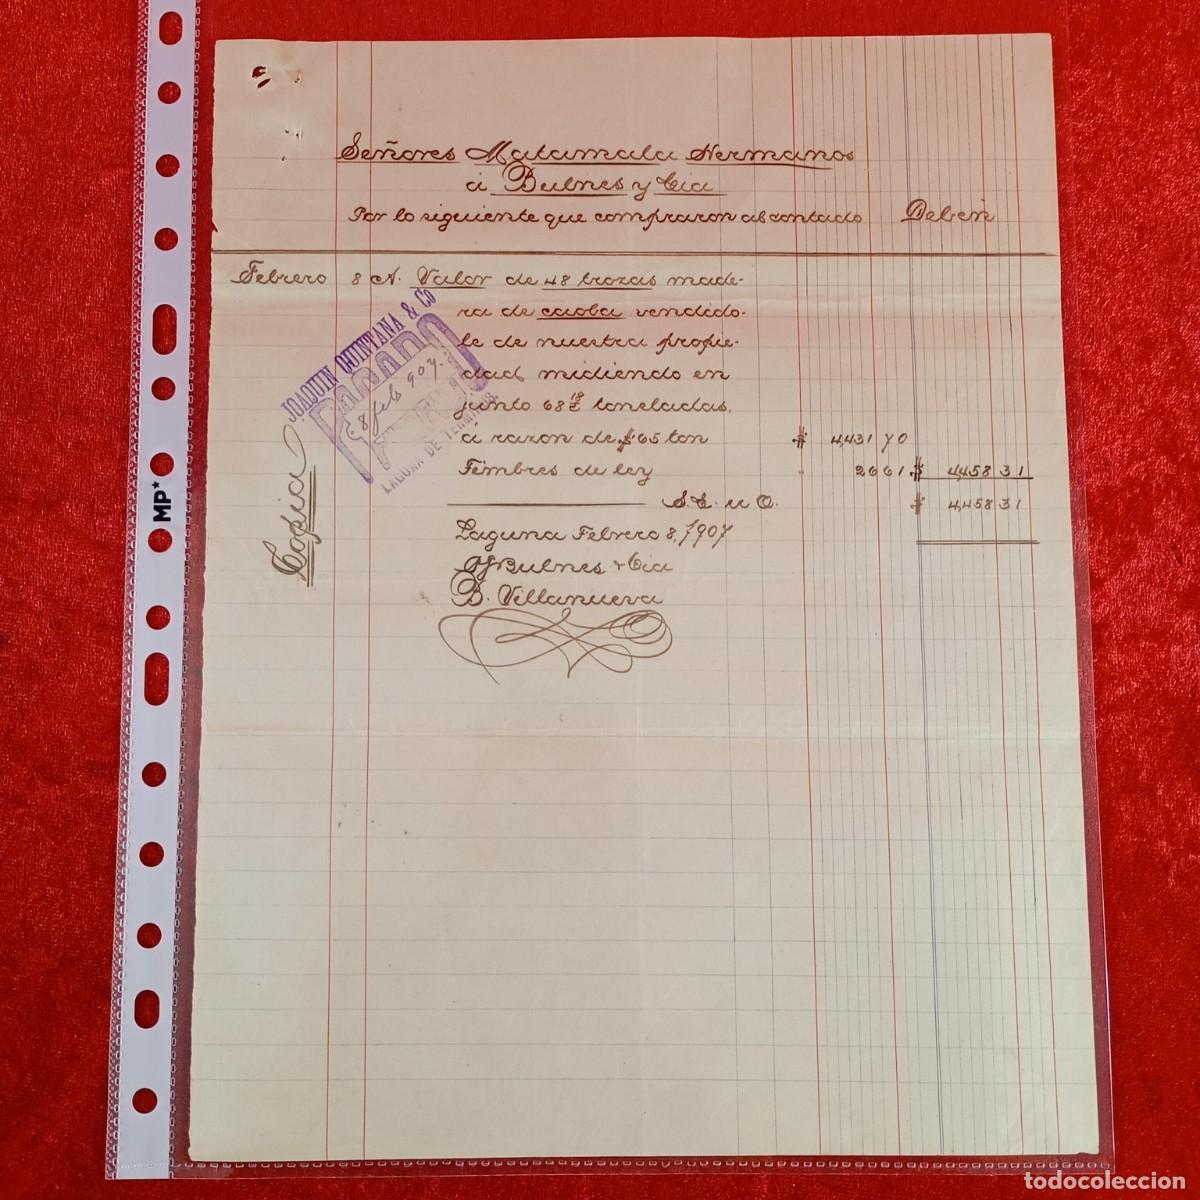 Señores Matamala Hermanos
á Bulnes y Cia
Por lo siguiente que compraron al contado Deben
Febrero 8 A. Valor de 48 trozas made-
ra de caoba vendido-
le de nuestra propie-
dad midiendo en
junto 68 toneladas,
á razon de $65 ton $ 4,431 70
Timbres de ley 26 61 $ 4,458 31
S. E. u O. $ 4,458 31
Laguna Febrero 8, 1907
Bulnes & Cia
B. Villanueva
Copia
JOAQUIN QUINTANA & Co
PAGADO
8 feb 907.
LAGUNA DE TERMINOS
MP*
todocoleccion